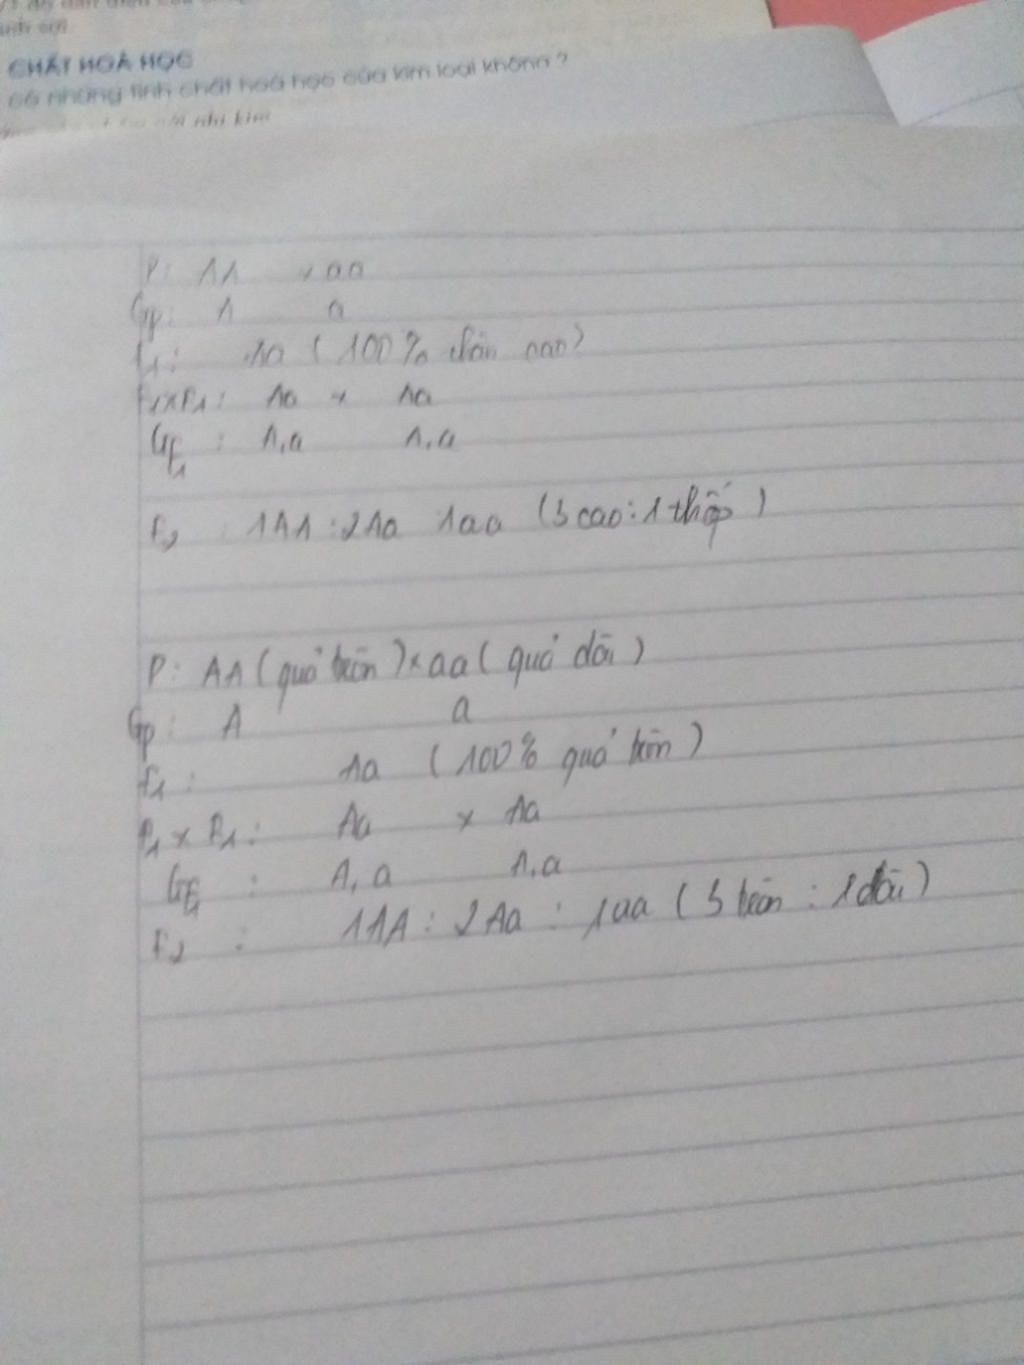 CHẤT HOÁ HỌC
có những tính chất hoá học của kim loại không ?
phi kim
P: AA x aa
Gp: A a
F1: Aa (100% thân cao)
F1xF1: Aa x Aa
GF1 : A,a A,a
F2 : 1AA : 2Aa 1aa (3 cao : 1 thấp)
P: AA (quả tròn) x aa (quả dài)
Gp: A a
F1: Aa (100% quả tròn)
F1 x F1: Aa x Aa
GF1 : A, a A,a
F2 : 1AA : 2Aa : 1aa (3 tròn : 1 dài)